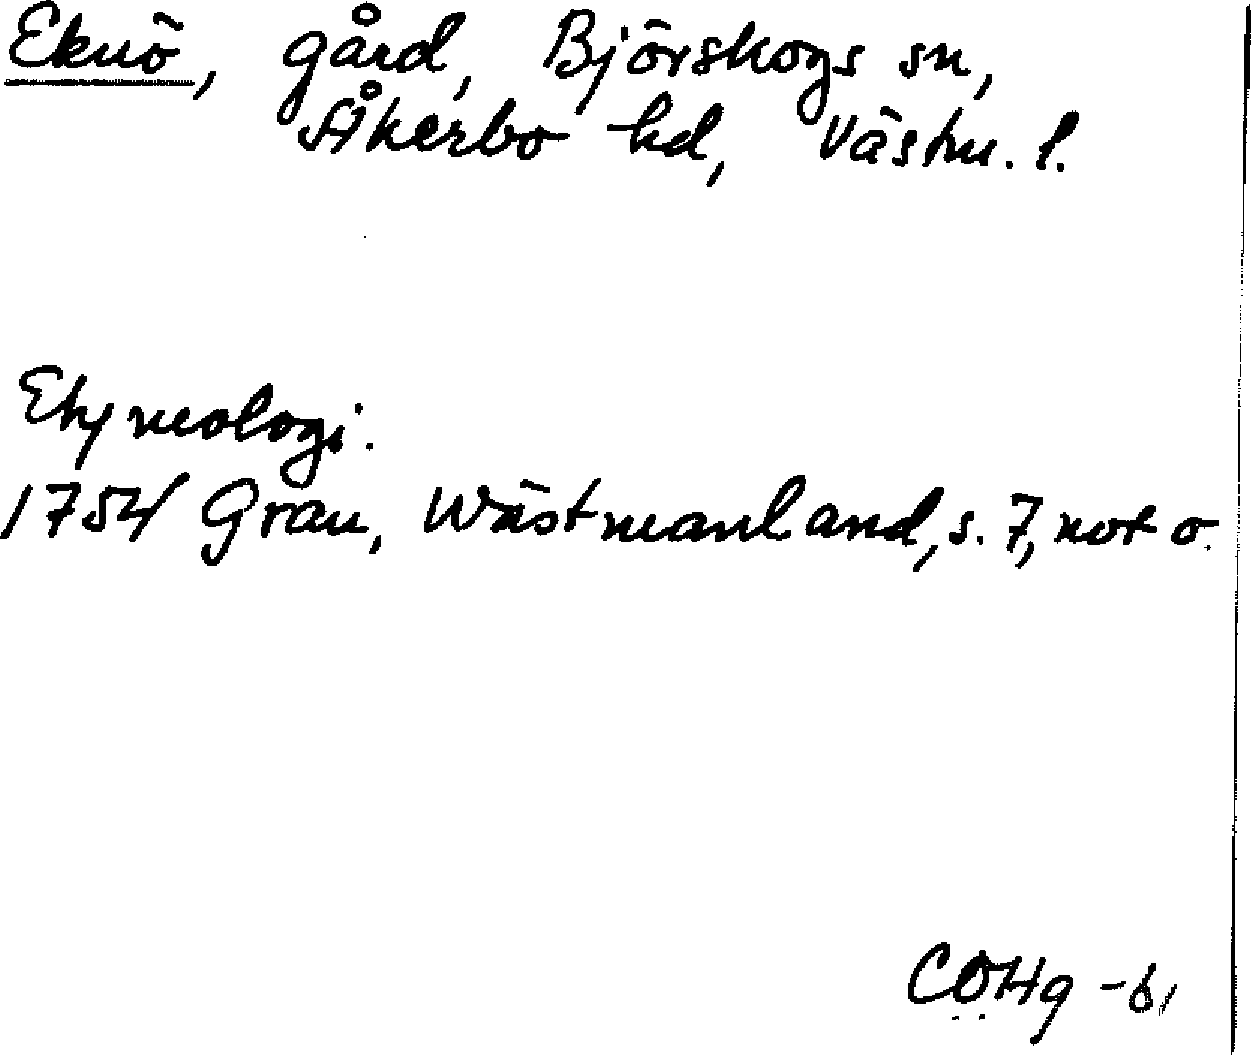 Eknö, gård, Björskogs sn,
Åkerbo hd, Västm. l.
Etymologi.
1754 Grau, Wästmanland, s. 7, not o.
COHg -61